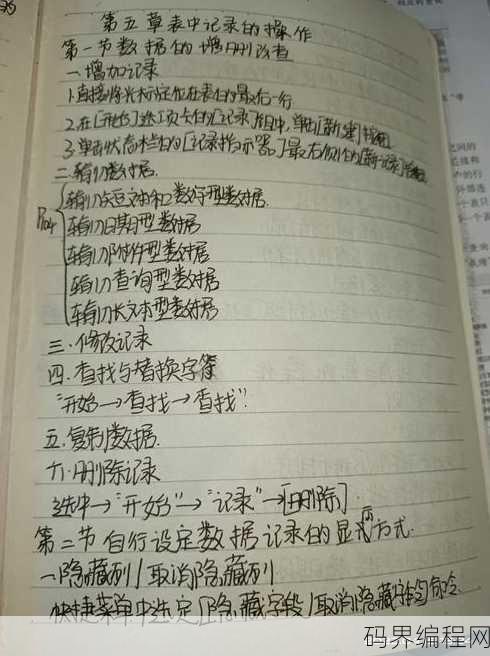 第五章表中记录的操作
第一节数据的增删改查
一.增加记录
1.直接将光标定位在表的最后一行
2.在[开始]选项卡的[记录]组中,单击[新建]按钮
3.单击状态栏的[记录指示器]最右侧的[新记录]按钮
二.输入数据.
P104
输入短文本和数字型数据.
输入日期型数据
输入附件型数据
输入查询型数据
输入长文本型数据
三.修改记录
四.查找与替换字符
"开始→查找→查找"
五.复制数据.
六.删除记录
选中→"开始"→"记录"→[删除]
第二节自行设定数据记录的显示方式.
一.隐藏列/取消隐藏列
快捷菜单中选定[隐藏字段/取消隐藏字段]命令
码界编程网